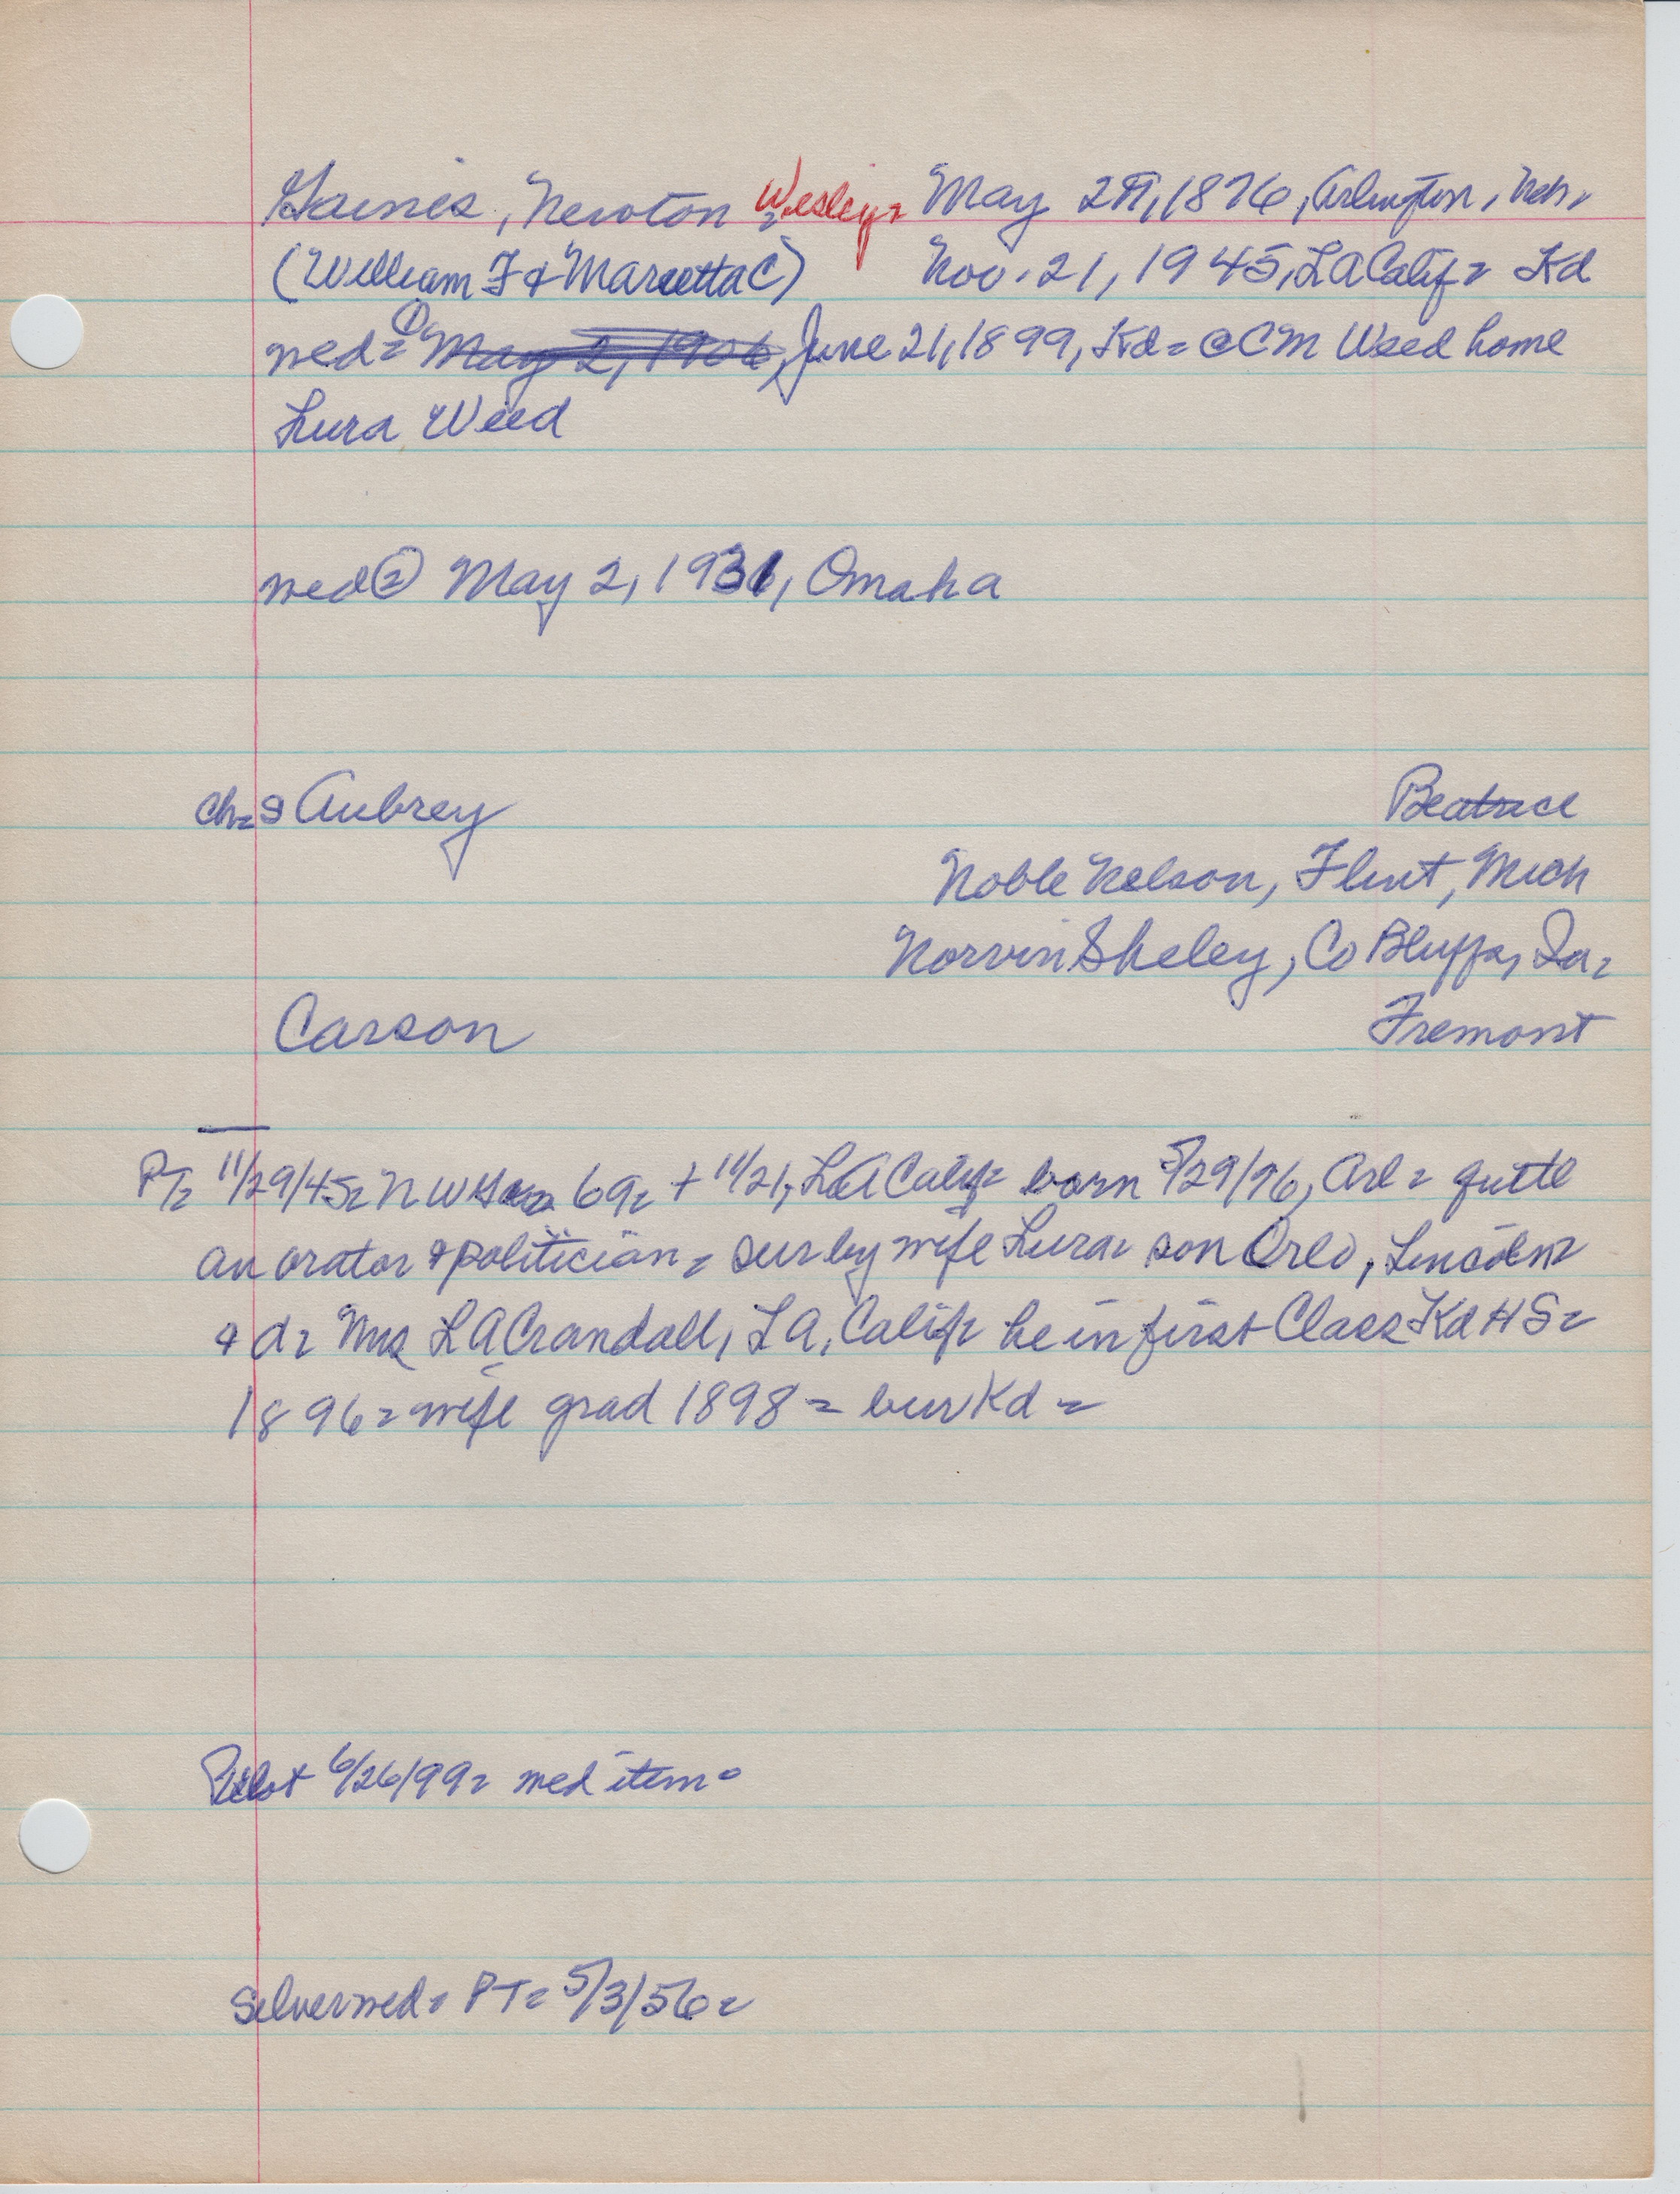 Gaines, Newton Wesley= May 29, 1876, Arlington, Neb,
(William F & Marietta C) Nov. 21, 1945, LA Calif= Kd
wed= ① May 2, 1906, June 21, 1899, Kd= @ CM Weed home
Lura Weed
wed② May 2, 1931, Omaha
ch= Aubrey Beatrice
Noble Nelson, Flint, Mich
Norvin Sheley, Co Bluffs, Ia=
Carson Fremont
PT= 11/29/45= N W 69= + 11/21, LA Calif= born 5/29/76, Arl= quite
an orator & politician= sur by wife Lura= son Orlo, Lincoln=
& d= Mrs L A Crandall, LA, Calif= he in first Class Kd HS=
1896= wife grad 1898= bur Kd=
Pilot 6/26/99= wed item=
Silver wed= PT= 5/3/56=